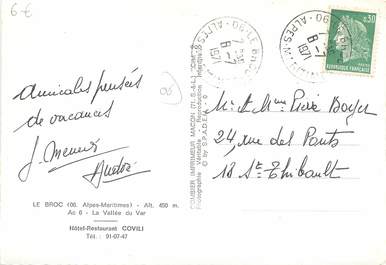 6 €
Amicales pensées
de vacances
LE BROC (06. Alpes-Maritimes) - Alt. 450 m.
Ac 6 - La Vallée du Var
Hôtel-Restaurant COVILI
Tél. : 91-07-47
COMBIER IMPRIMEUR MACON (71. S.-&-L.) "CIM"
Photographie véritable - Reproduction interdite
© by S.P.A.D.E.M.
LE BROC
8-7
1971
ALPES-M
06
0,30
REPUBLIQUE FRANÇAISE
M. et Mme Pierre Boyer
24, rue des Ponts
18 St. Thibault